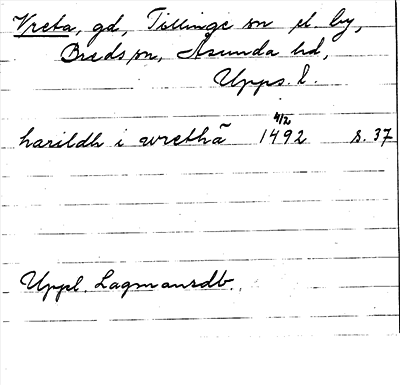 Vreta, gd, Tillinge sn el. by,
Breds sn, Åsunda hd,
Upps. l.
4/2
harildh i wrethã 1492 s. 37
Uppl. Lagmansdb.